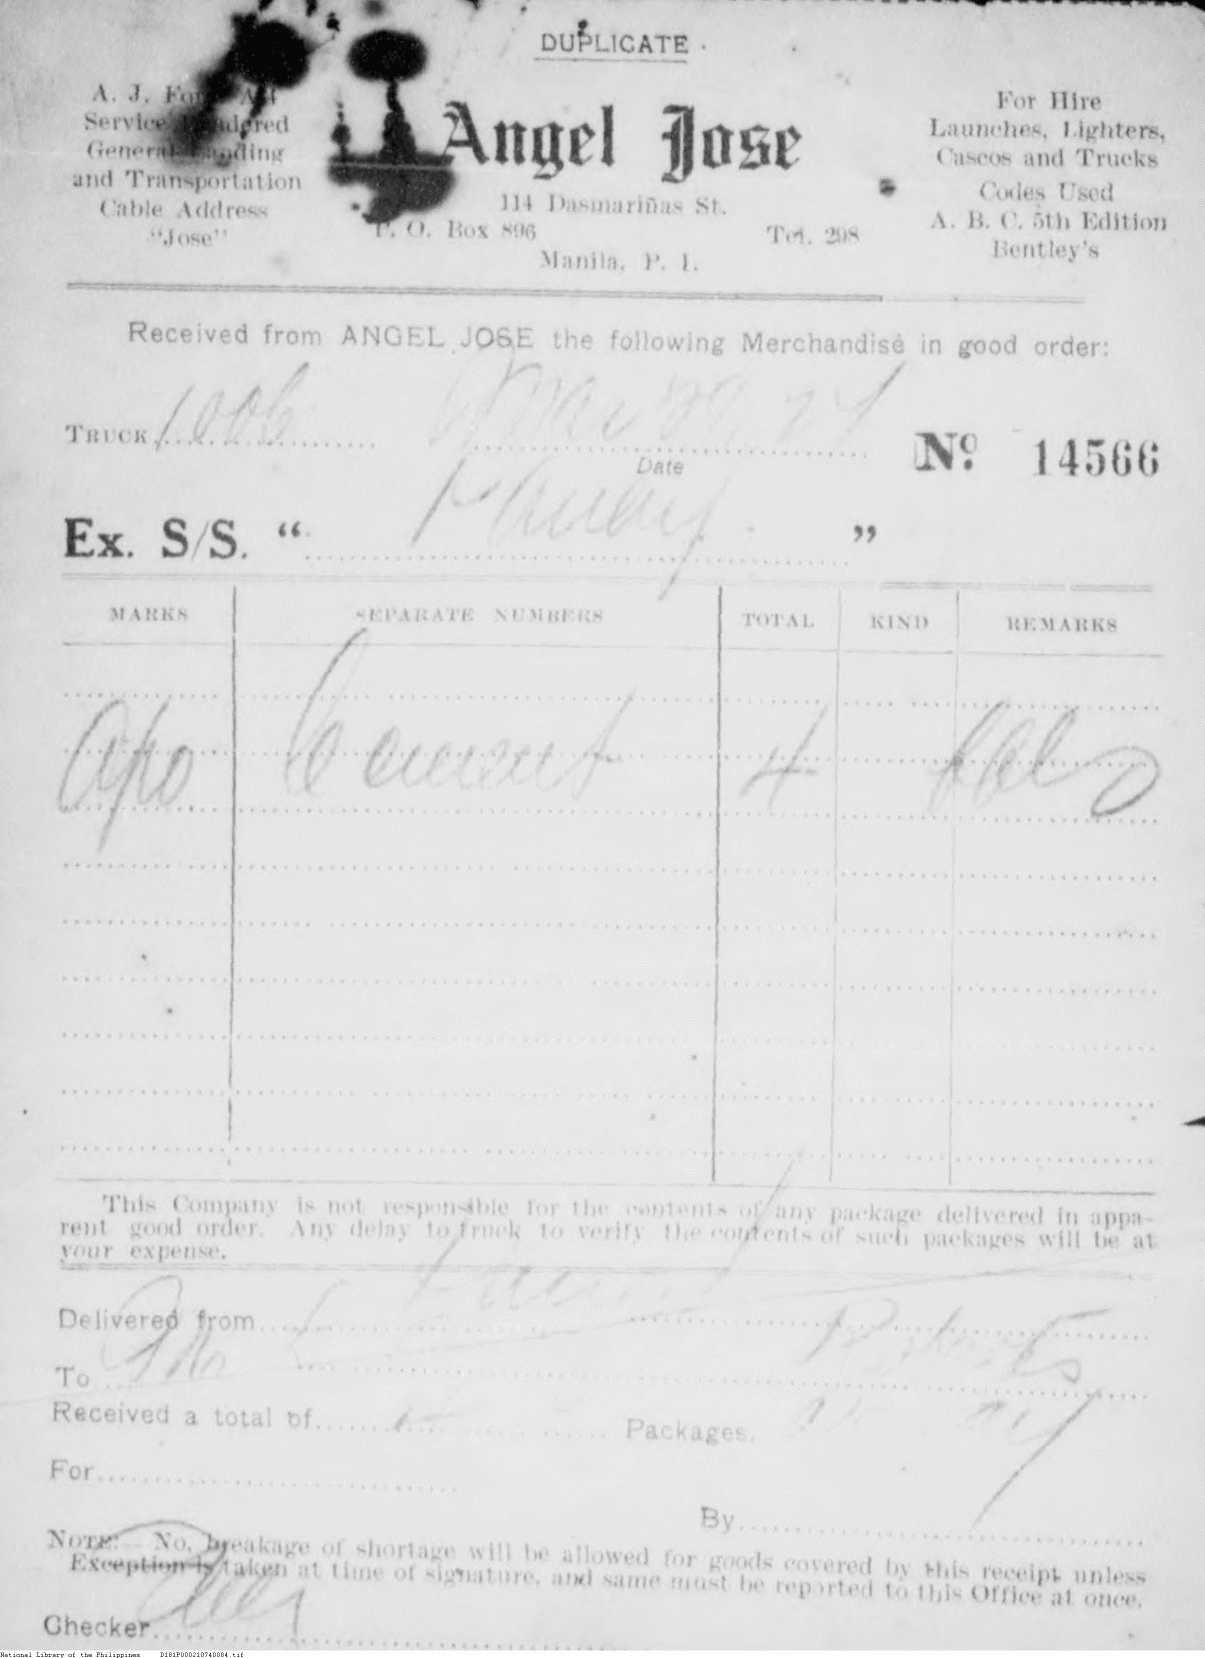 DUPLICATE
A. J. For All
Service Rendered
General Handling
and Transportation
Cable Address
"Jose"
Angel Jose
114 Dasmariñas St.
P. O. Box 896 Tel. 298
Manila, P. I.
For Hire
Launches, Lighters,
Cascos and Trucks
Codes Used
A. B. C. 5th Edition
Bentley's
Received from ANGEL JOSE the following Merchandise in good order:
TRUCK 1006
Date
No. 14566
Ex. S/S. " "
MARKS SEPARATE NUMBERS TOTAL KIND REMARKS
Apo Cement 4 bbls
This Company is not responsible for the contents of any package delivered in appa-
rent good order. Any delay to truck to verify the contents of such packages will be at
your expense.
Delivered from
To
Received a total of Packages.
For
By
NOTE: No, breakage of shortage will be allowed for goods covered by this receipt unless
Exception is taken at time of signature, and same must be reported to this Office at once.
Checker
National Library of the Philippines D181P000210740084.tif